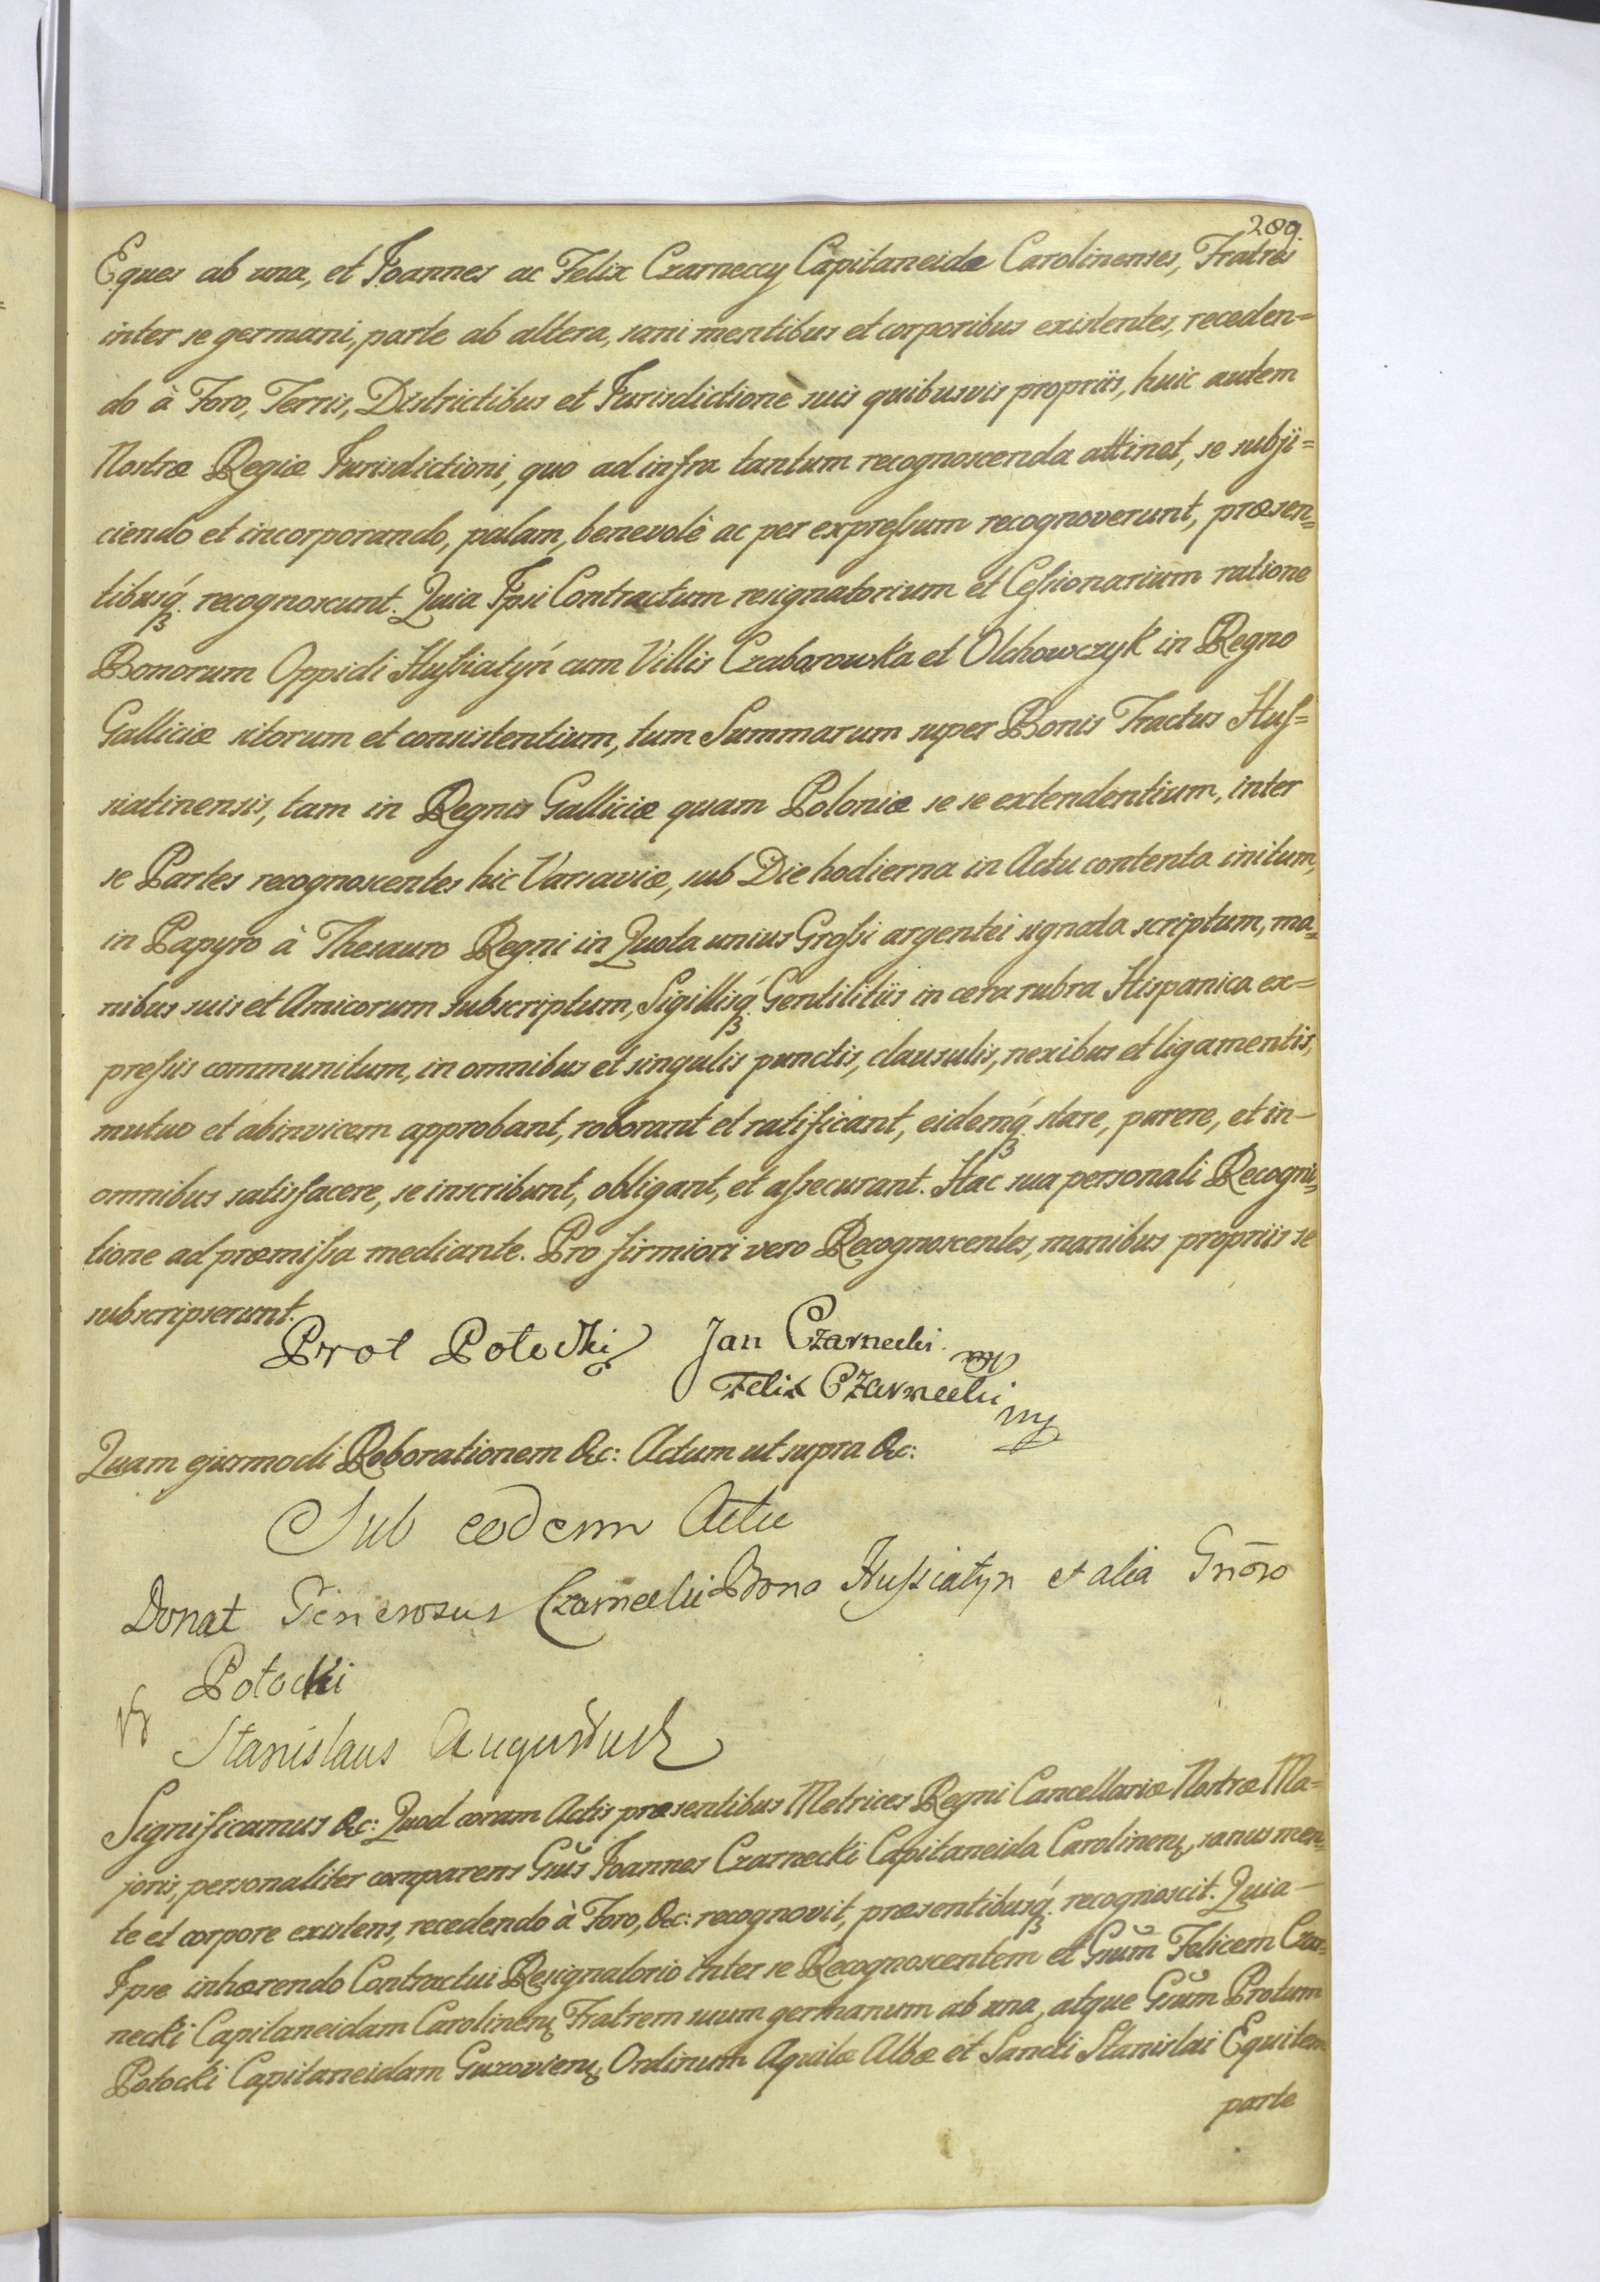 289
Eques ab una, et Joannes ac Felix Czarneccy Capitaneidæ Carolinenses, Fratres
inter se germani, parte ab altera, sani mentibus et corporibus existentes, receden=
do à Foro, Terris, Districtibus et Jurisdictione suis quibusvis propriis, huic autem
Nostræ Regiæ Jurisdictioni, quo ad infra tantum recognoscenda attinet, se subji=
ciendo et incorporando, palam, benevolè ac per expreſsum recognoverunt, præsen=
tibusq́ꝫ recognoscunt. Quia Ipsi Contractum resignatorium et Ceſsionarium ratione
Bonorum Oppidi Huſsiatyń cum Villis Czabarowka et Olchowczyk in Regno
Galliciæ sitorum et consistentium, tum Summarum super Bonis Tractus Huſ=
siatinensis, tam in Regno Galliciæ quam Poloniæ se se extendentium, inter
se Partes recognoscentes hic Varsaviæ, sub Die hodierna in Actu contenta initum,
in Papyro à Thesauro Regni in Quota unius Groſsi argentei signata scriptum, ma=
nibus suis et Amicorum subscriptum, Sigillisq́ꝫ Gentilitiis in cera rubra Hispanica ex=
preſsis communitum, in omnibus et singulis punctis, clausulis, nexibus et ligamentis,
mutuo et abinvicem approbant, roborant et ratificant, eidemq́ꝫ stare, parere, et in-
omnibus satisfacere, se inscribunt, obligant, et aſsecurant. Hac sua personali Recogni=
tione ad præmiſsa mediante. Pro firmiori vero Recognoscentes, manibus propriis se
subscripserunt.
Prot Potocki Jan Czarnecki mp
Felix Czarnecki mp
Quam ejusmodi Roborationem &c: Actum ut supra &c:
Sub eodem Actu
Donat Generosus Czarnecki Bona Huſsiatyn et alia Gn̄oso
Potocki
Stanislaus Augustus R
Significamus &c: Quod coram Actis præsentibus Metrices Regni Cancellariæ Nostræ Ma=
joris, personaliter comparens Gn̄us Joannes Czarnecki Capitaneida Carolinen, sanus men=
te et corpore existens, recedendo à Foro, &c: recognovit, præsentibusq́ꝫ recognoscit. Quia-
Ipse inhærendo Contractui Resignatorio inter se Recognoscentem et Gn̄um Felicem Czar=
necki Capitaneidam Carolinen Fratrem suum germanum ab una, atque Gn̄um Protum
Potocki Capitaneidam Guzovien, Ordinum Aquilæ Albæ et Sancti Stanislai Equitem
parte